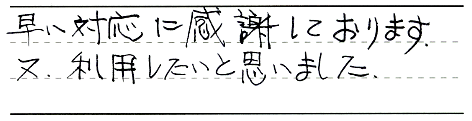 早い対応に感謝しております.
又、利用したいと思いました.